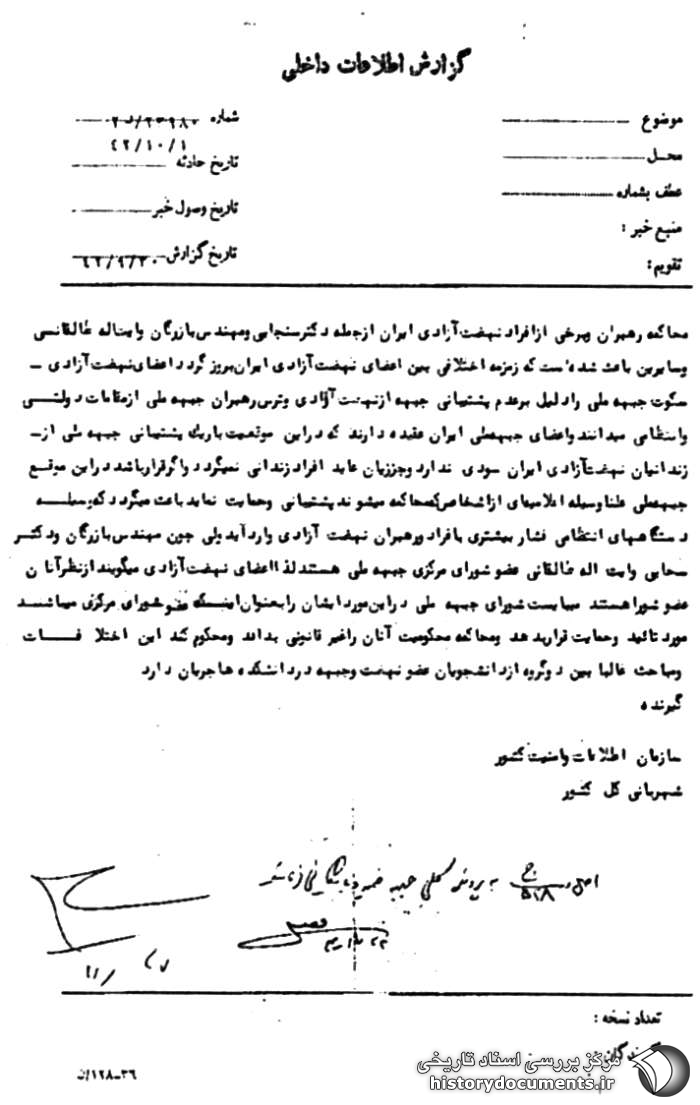 گزارش اطلاعات داخلی
موضوع
شماره ۲۳۹۸۰/د۲
۴۲/۱۰/۱
محل
تاریخ حادثه
عطف بشماره
تاریخ وصول خبر
منبع خبر :
تاریخ گزارش ۴۲/۹/۳۰
تقویم :
محاکمه رهبران وبرخی ازافراد نهضت‌آزادی ایران ازجمله دکترسنجابی ومهندس‌بازرگان وایت‌اله طالقانسی
وسایرین باعث شده‌است که زمزمه اختلافی بین اعضای نهضت‌آزادی ایران‌بروز گردد اعضای‌نهضت‌آزادی –
سکوت جبهه ملی رادلیل برعدم پشتیبانی جبهه ازنهضت آزادی وترس‌رهبران جبهه ملی ازمقامات دولتسی
وانتظامی میدانند واعضای جبهه‌ملی ایران عقیده دارند که دراین موقعیت باریک پشتیبانی جبهه ملی از–
زندانیان نهضت‌آزادی ایران سودی ندارد وجززیان عاید افراد زندانی نمیگردد واگرقرارباشد دراین موقسع
جبهه‌ملی علنا وسیله اعلامیه‌ای ازاشخاصی‌که‌محاکمه میشوند پشتیبانی وحمایت نماید باعث میگردد که‌وسیلسه
دستگاههای انتظامی فشار بیشتری بافراد ورهبران نهضت آزادی وارد آید ولی چون مهندس‌بازرگان ودکتسر
سحابی وایت اله طالقانی عضو شورای مرکزی جبهه ملی هستند لذا اعضای نهضت‌آزادی میگویند ازنظرآنان
عضو شورا هستند میبایست شورای جبهه ملی دراین‌مورد ایشان رابعنوان‌اینسکه عضوشورای مرکزی میباشنسد
مورد تائید وحمایت قرارید هد ومحاکمه محکومیت آنان راغیر قانونی بداند ومحکوم کند این اختلا فسات
ومباحث غالبا بین دوگروه ازدانشجویان عضو نهضت وجبهه در دانشکده ها جریان دارد
گیرنده
سازمان اطلاعات وامنیت کشور
شهربانی کل کشور
تعداد نسخه :
۳۶–۱۲۸/ن
مرکز بررسی اسناد تاریخی
historydocuments.ir